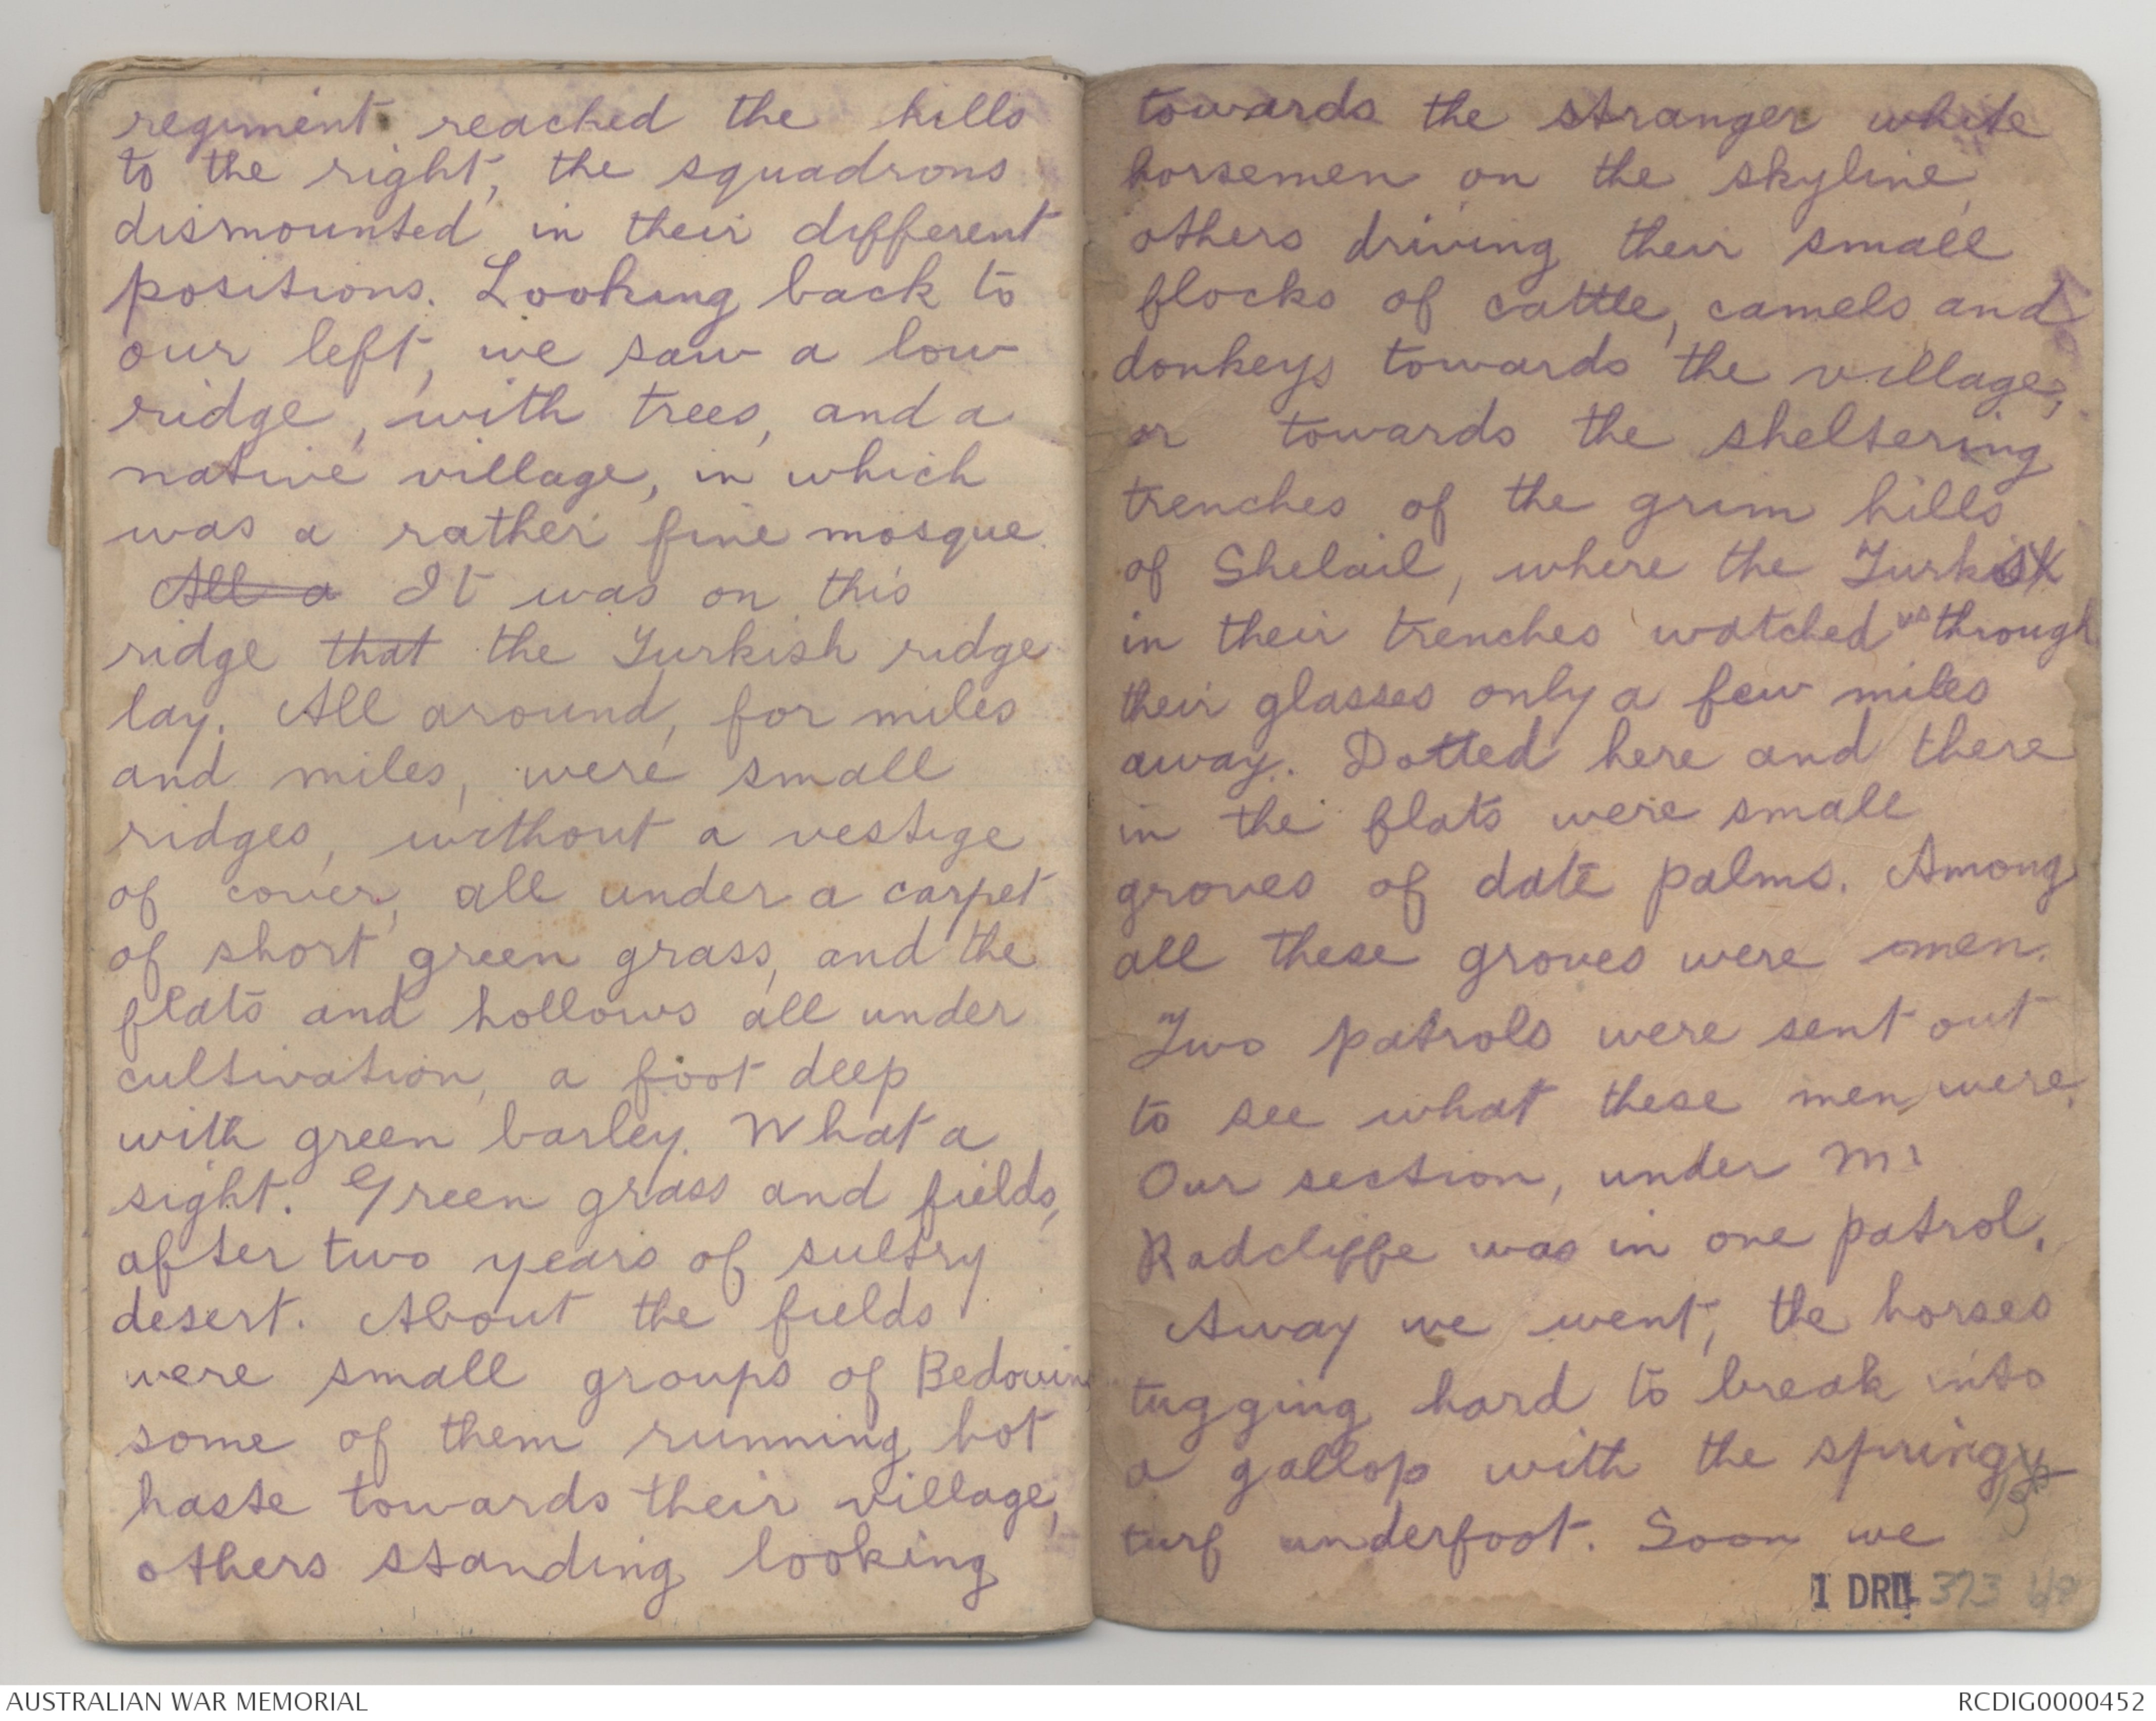 regiment reached the hills
to the right, the squadrons
dismounted in their different
positions. Looking back to
our left, we saw a low
ridge, with trees, and a
native village, in which
was a rather fine mosque.
All a It was on this
ridge that the Turkish ridge
lay. All around, for miles
and miles, were small
ridges, without a vestige
of cover, all under a carpet
of short green grass, and the
flats and hollows all under
cultivation, a foot deep
with green barley. What a
sight. Green grass and fields,
after two years of sultry
desert. About the fields
were small groups of Bedouins
some of them running hot
haste towards their village,
others standing looking
towards the stranger white
horsemen on the skyline,
others driving their small
flocks of cattle, camels and
donkeys towards the village,
or towards the sheltering
trenches of the grim hills
of Shelail, where the Turks
in their trenches watched us through
their glasses only a few miles
away. Dotted here and there
in the flats were small
groves of date palms. Among
all these groves were men.
Two patrols were sent out
to see what these men were.
Our section, under Mr
Radcliffe was in one patrol.
Away we went, the horses
tugging hard to break into
a gallop with the springy
turf underfoot. Soon we
1 DRL 373
AUSTRALIAN WAR MEMORIAL
RCDIG0000452